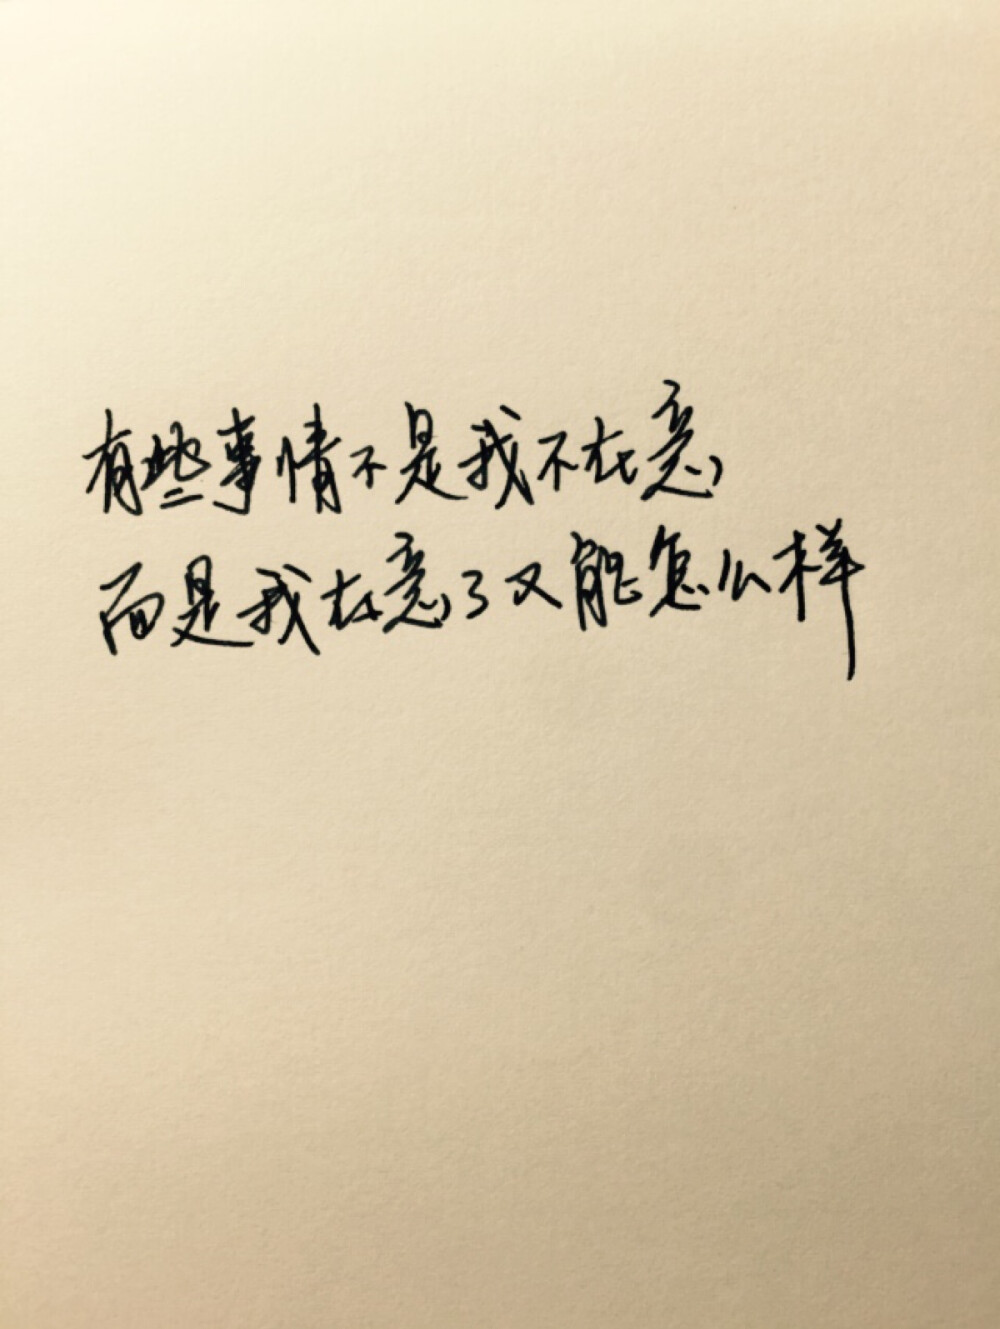 有些事情不是我不在意
而是我在意了又能怎么样